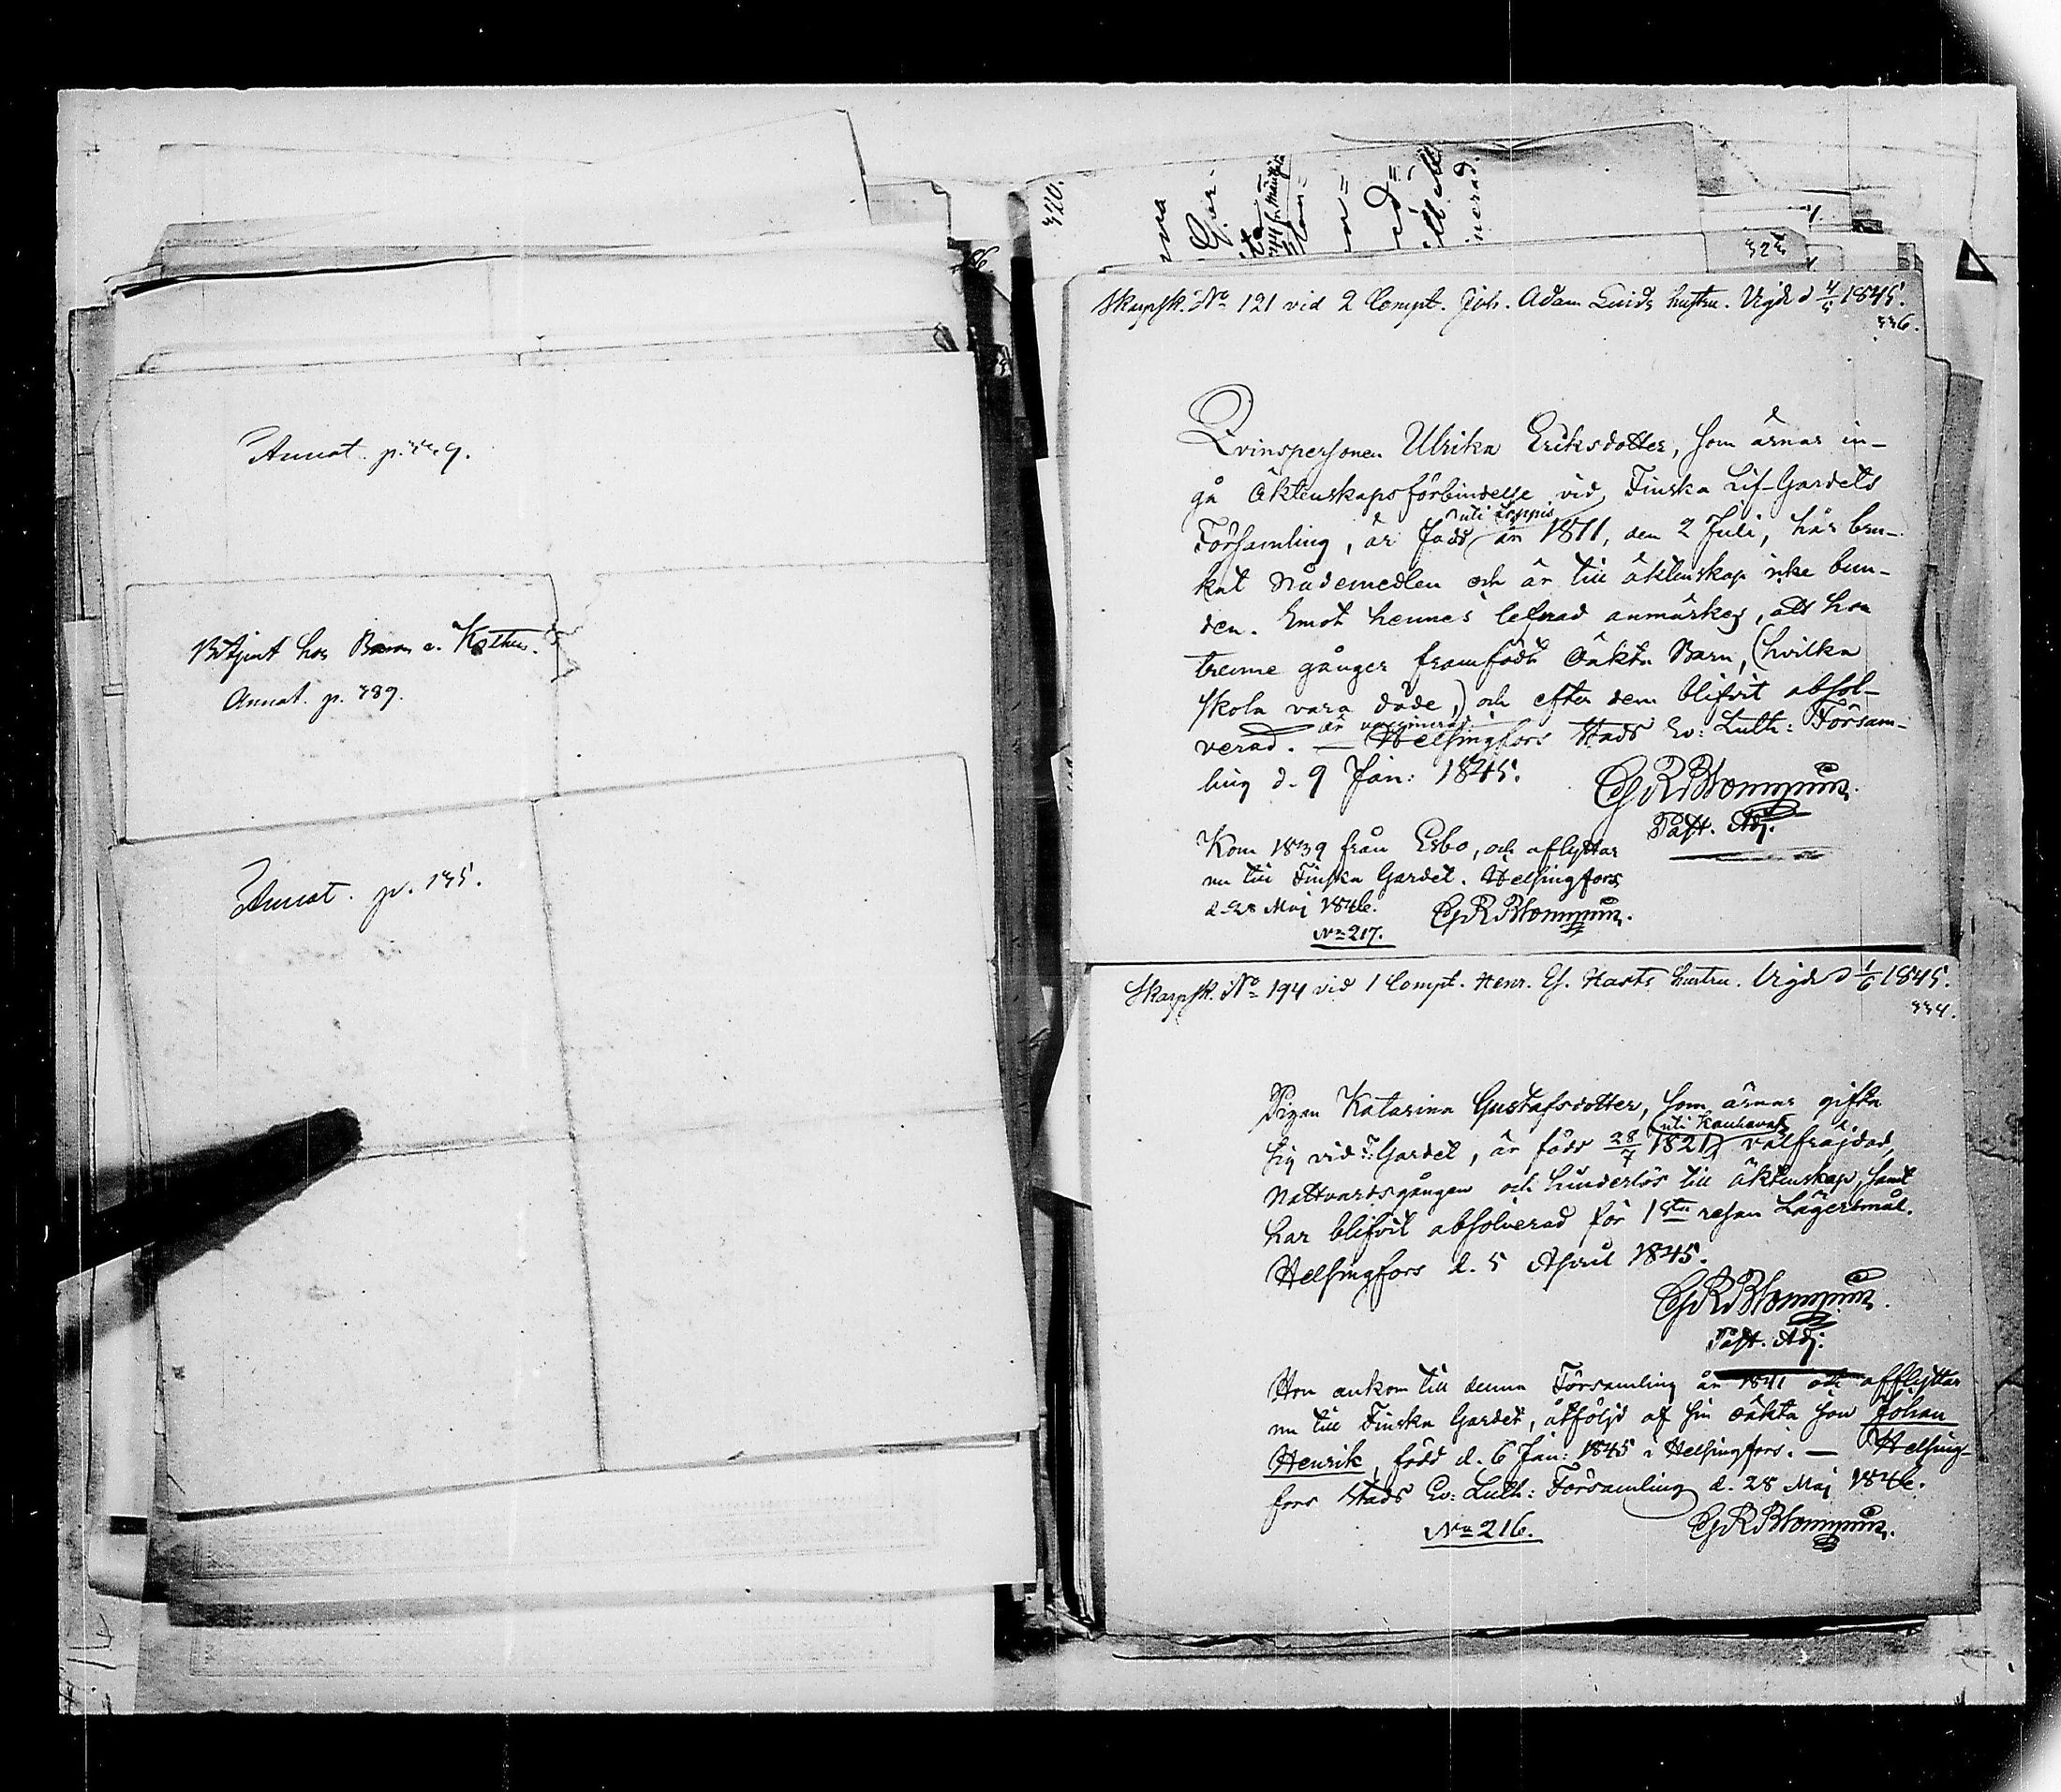 Annat. p. 449.
Betjent hos Baron v. Kothen.
Annat. p. 389.
Annat. p. 135.
320.
325
Skarpsk. No 121 vid 2 Compt. Joh. Adam Linds hustru. Vigde d 4/5 1845.
336.
Qvinspersonen Ulrika Eriksdotter, som ärnar in-
gå äktenskapsförbindelse vid Finska Lif-Gardets
uti Loppis
Församling, är född år 1811, den 2 Juli, har bru-
kat Nådemedlen och är till äktenskap icke bun-
den. Emot hennes lefnad anmärkes, att hon
trenne gånger framfödt oäkta Barn, (hvilka
skola vara döde,) och efter dem blifvit absol-
är vaccinerad
verad. — Helsingfors Stads Ev: Luth: Försam-
ling d. 9 Jan: 1845.
Past. Adj.
Kom 1839 från Esbo, och aflyttar
nu till Finska Gardet. Helsingfors
d. 28 Maj 1846.
No 217.
Skarpsk. No 194 vid 1 Compt. Henr. Es. Harts hustru. Vigde d 1/6 1845.
334.
Pigan Katarina Gustafsdotter, som ärnar gifta
uti Kauhava
sig vid F. Gardet, är född 28/7 1821, välfräjdad,
Nattvardsgången och hinderlös till äktenskap, samt
har blifvit absolverad för 1sta resan Lägersmål.
Helsingfors d. 5 April 1845.
Past. Adj.
Hon ankom till denna Församling år 1841 och afflyttar
nu till Finska Gardet, åtföljd af sin oäkta son Johan
Henrik, född d. 6 Jan: 1845 i Helsingfors. — Helsing-
fors Stads Ev: Luth: Församling d. 28 Maj 1846.
No 216.